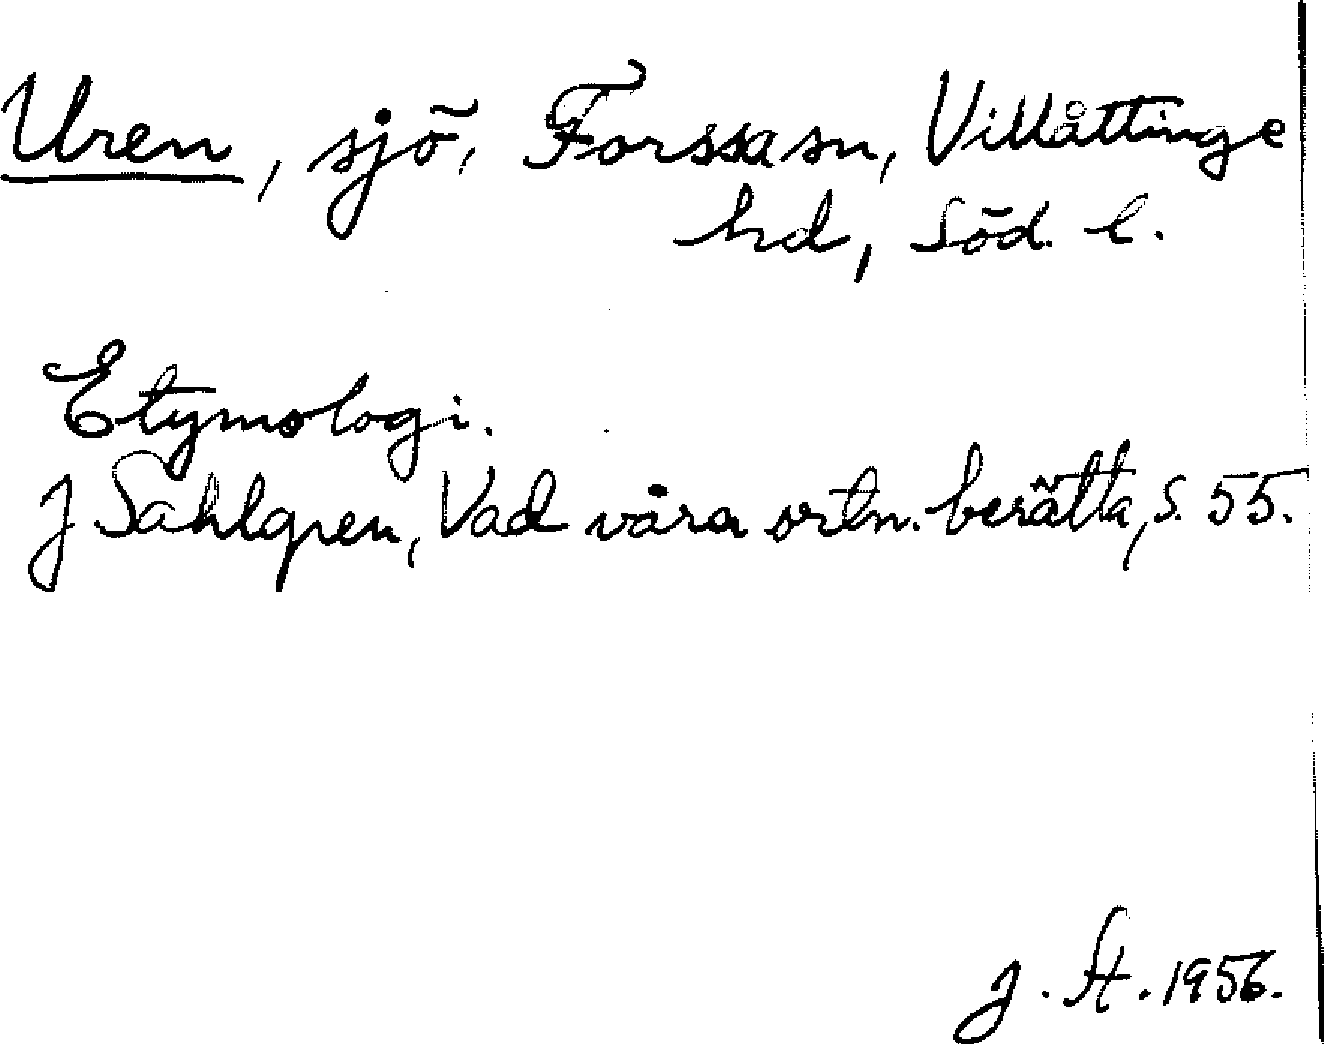 Uren, sjö, Forssa sn, Villåttinge
hd, Söd. l.
Etymologi.
J Sahlgren, Vad våra ortn. berätta, s. 55.
J. St. 1956.